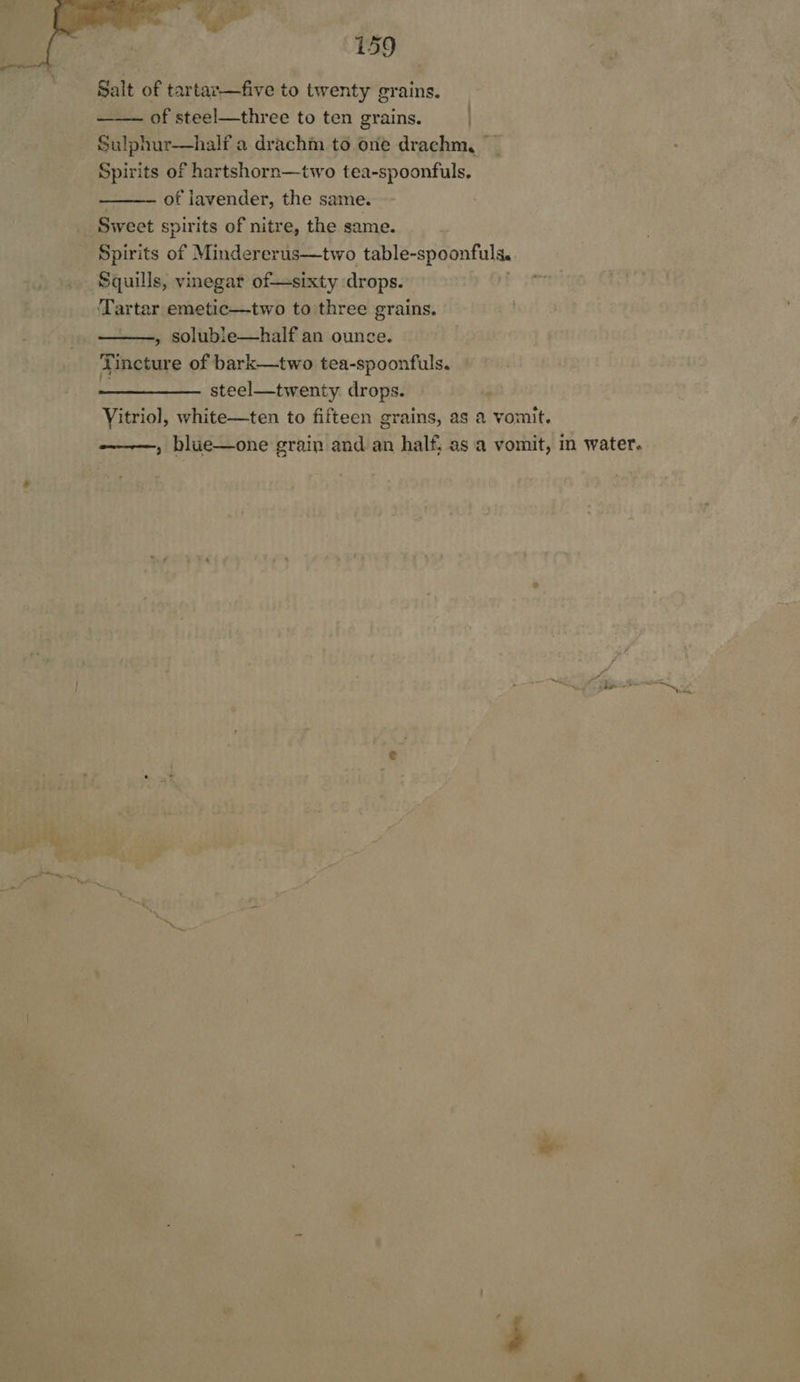 159
Salt of tartar—five to twenty grains.
—— of steel—three to ten grains.
Sulphur—half a drachm to one drachm.
Spirits of hartshorn—two tea-spoonfuls.
——— of lavender, the same.
Sweet spirits of nitre, the same.
Spirits of Mindererus—two table-spoonfuls.
Squills, vinegar of—sixty drops.
Tartar emetic—two to three grains.
———, soluble—half an ounce.
Tincture of bark—two tea-spoonfuls.
————— steel—twenty drops.
Vitriol, white—ten to fifteen grains, as a vomit.
———, blue—one grain and an half, as a vomit, in water.